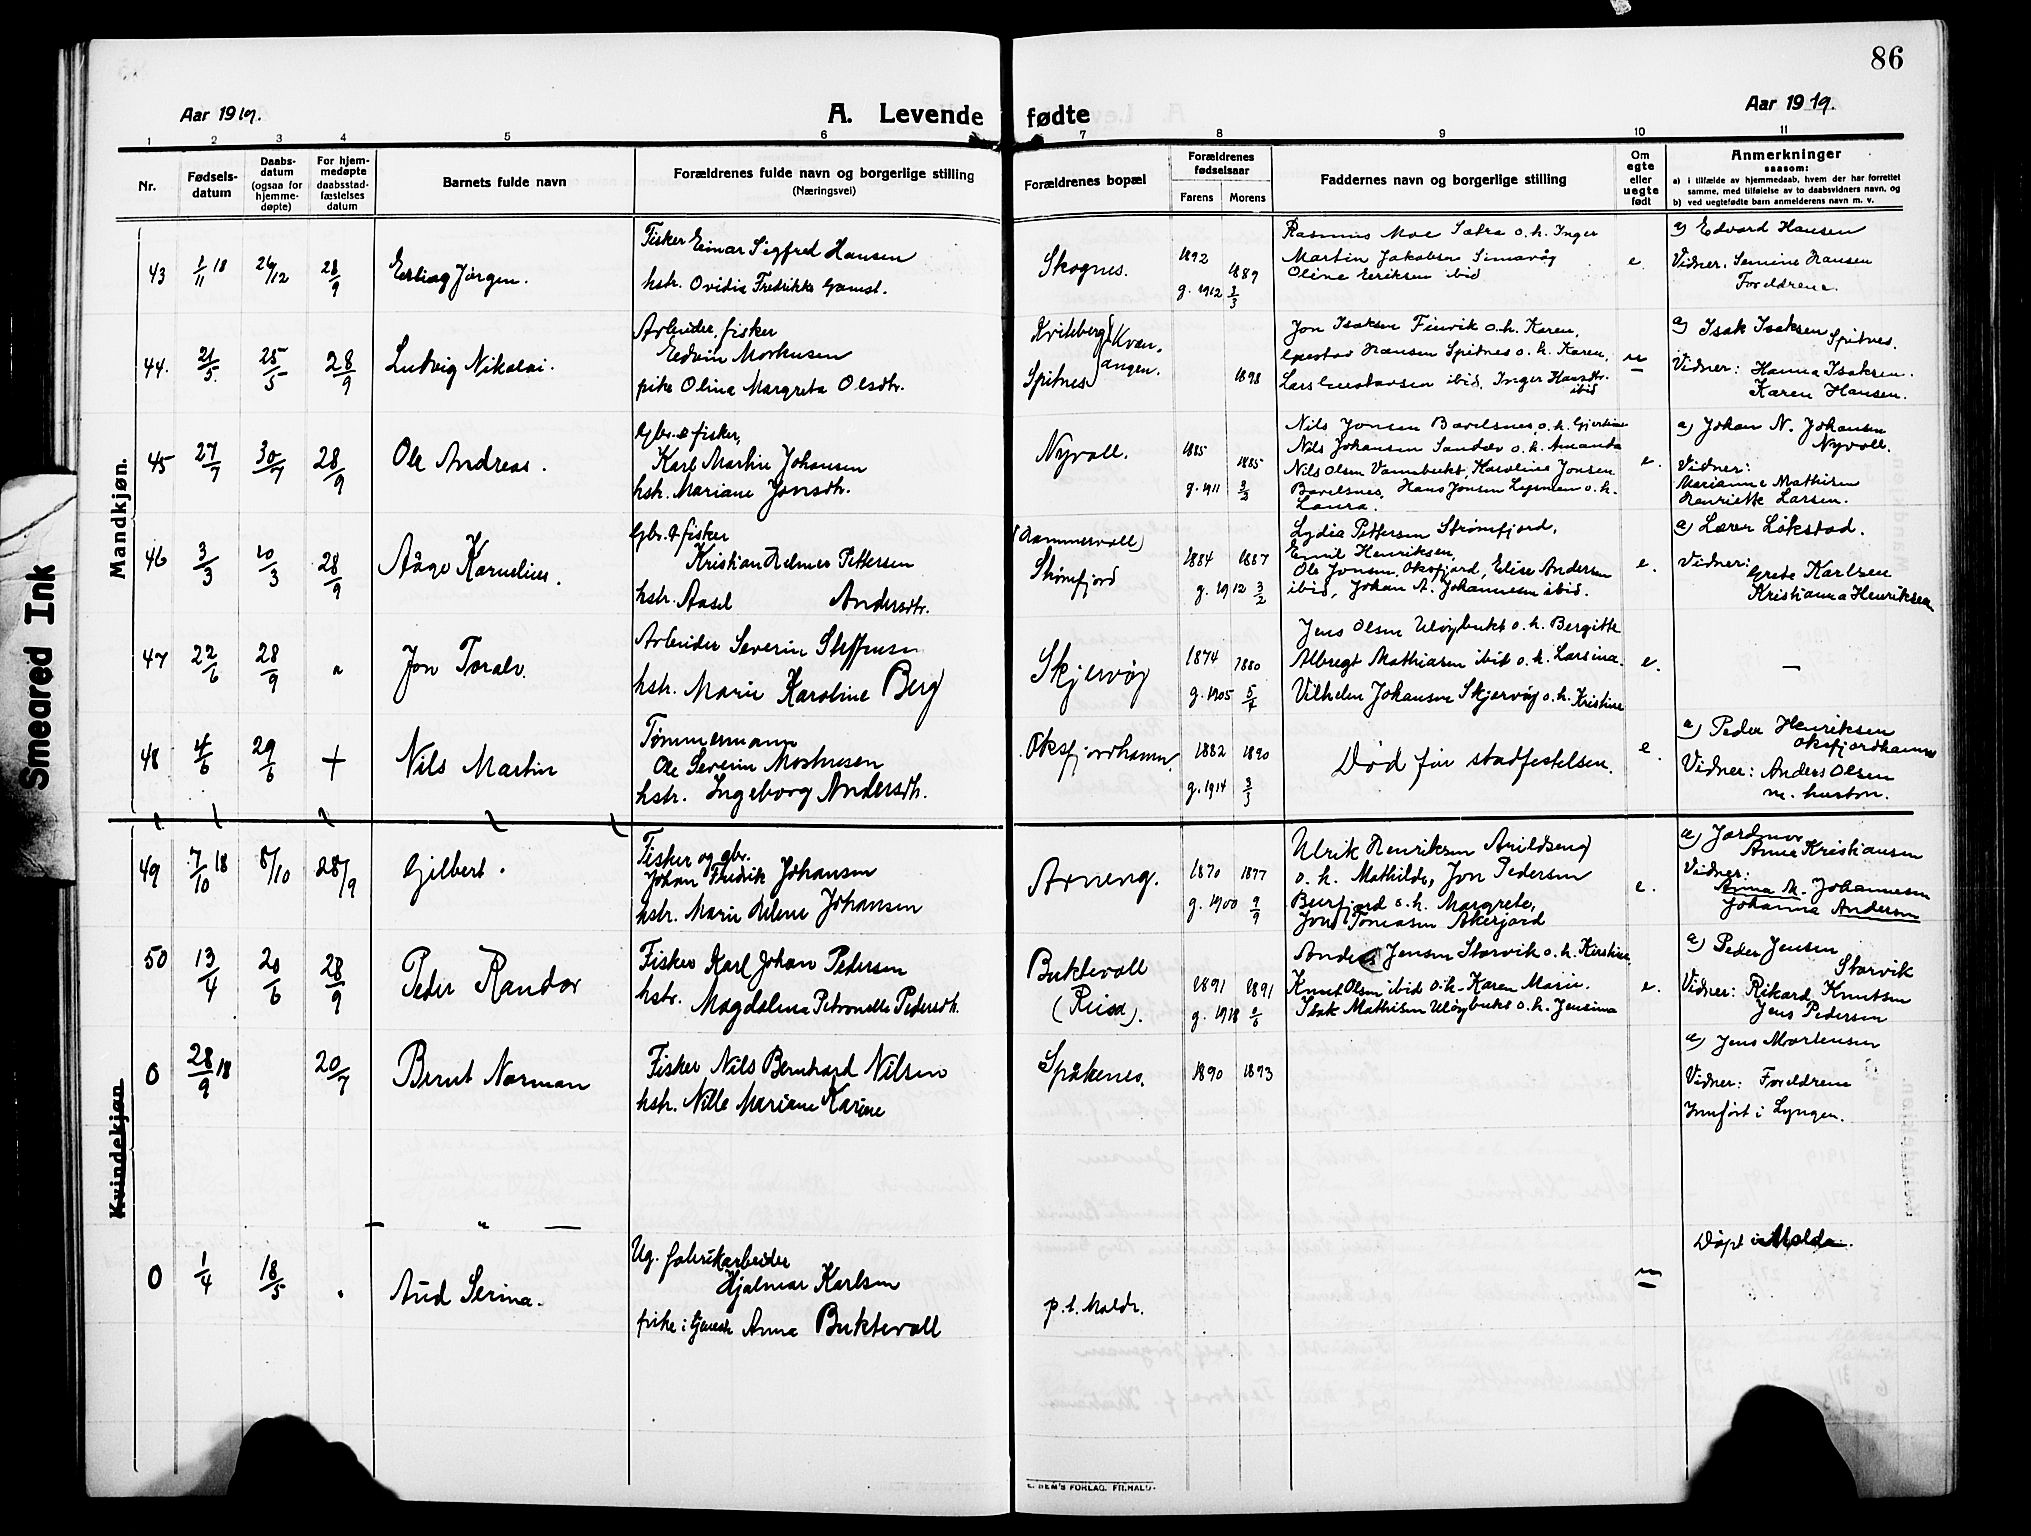 86
Aar 1919.
A. Levende fødte
Aar 1919.
1 2 3 4 5 6 7 8 9 10 11
Nr.
Fødsels-
datum
Daabs-
datum
(ogsaa for
hjemme-
døpte)
For hjem-
medøpte
daabsstad-
fæstelses
datum
Barnets fulde navn
Forældrenes fulde navn og borgerlige stilling
(Næringsvei)
Forældrenes bopæl
Forældrenes
fødselsaar
Farens Morens
Faddernes navn og borgerlige stilling
Om
egte
eller
uegte
født
Anmerkninger
saasom:
a) i tilfælde av hjemmedaab, hvem der har forrettet
samme, med tilføielse av to daabsvidners navn, og
b) ved uegtefødte barn anmelderens navn m. v.
Mandkjøn.
43 1/11 18 26/12 28/9 Erling Jørgen.
Fisker Einar Sigfred Hansen
hstr. Ovidia Fredrikke Gamst.
Skognes.
1892 1889
g. 1912 3/3
Rasmus Moe Sætra o.h. Inger
Martin Jakobsen
Oline Eriksen ibid
e.
a) Edvard Hansen
Vidner. Semine Hansen
Foreldrene.
44. 21/5. 25/5 28/9 Ludvig Nikolai.
Arbeider, fisker
Edvin Markusen
pike Olina Margreta Olsdtr.
Kviteberg Kvæn-
angen.
Spitnes
1898
Jon Isaksen Finvik o.h. Karen,
Gustav Hansen Spitnes o.h. Karen,
Lars Gustavsen ibid, Inger Hansdtr.
ibid
u
a) Isak Isaksen
Spitnes.
Vidner: Hanna Isaksen.
Karen Hansen.
45 27/7 30/7 28/9 Ole Andreas.
Gbr. & fisker,
Karl Martin Johansen
hstr. Mariane Jonsdtr.
Nyvoll.
1885 1885
g. 1911 3/3
Nils Jonsen Bavelsnes, o.h. Gjertine
Nils Johansen o.h. Amanda
Nils Olsen Vannbukt, Karoline Jonsen
Bavelsnes, Hans Jonsen o.h.
Laura.
e.
a) Johan N. Johansen
Nyvoll.
Vidner:
Marianne Mathisen
Henriette Larsen.
46 3/3 10/3 28/9 Aage Kornelius.
Gbr. & fisker
Kristian Helmer Pettersen
hstr. Aasel Andersdtr.
(Hammervoll)
Strømfjord
1884 1887
g. 1912 3/2
Lydia Pettersen Strømfjord,
Emil Henriksen,
Ole Jonsen, Oksfjord, Elise Andersen
ibid, Johan A. Johannesen ibid.
e.
a) Lærer Løkstad.
Vidner:
Grete Karlsen
Kristianna Henriksen
47 22/6 28/9 " Jon Toralv.
Arbeider Severin Steffensen
hstr. Marie Karoline Berg
Skjervøy
1874 1880
g. 1905 5/4
Jens Olsen Uløybukt o.h. Bergitte
Albregt Mathiasen ibid o.h. Larsina.
Vilhelm Johansen Skjervøy o.h. Kristine
e.
—
48 4/6 29/6 + Nils Martin
Tømmermann
Ole Severin Mortensen
hstr. Ingeborg Andersdtr.
Oksfjordhamn.
1882 1890
g. 1914 3/3
Død før stadfestelsen.
e.
a) Peder Henriksen
Oksfjordhamn
Vidner: Anders Olsen
m. hustru.
49 7/10 18 8/10 28/9 Gilbert.
Fisker og gbr.
Johan Fredrik Johansen
hstr. Marie Helene Johansen
Arneng.
1870 1877
g. 1900 9/9
Ulrik Henriksen Arildseng
o.h. Mathilde, Jon Pedersen
Burfjord o.h. Margrete,
Jons Tomasen Akerjord
e.
a) Jordmor
Anna Kristiansen
Vidner:
Anna M. Johannesen
Johanna Andersen
50 13/4 20/6 28/9 Peder Randor
Fisker Karl Johan Pedersen
hstr. Magdalena Petronelle Pedersdtr.
Buktevoll
(Reisa).
1891 1891
g. 1918
Anders Jensen Storvik o.h. Kirstine,
Knut Olsen ibid o.h. Karen Marie.
Isak Mathisen Uløybukt o.h. Jensina
e.
a) Peder Jensen
Storvik
Vidner: Rikard Knutsen
Jens Pedersen
Kvindekjøn
0 28/9 18 20/7 Bernt Norman
Fisker Nils Bernhard Nilsen
hstr. Nille Mariane Karine
Spåkenes.
1890 1893
a) Jens Mortensen
Vidner: Foreldrene
Innført i Lyngen.
— " —
0 1/4 18/5 . Aud Serina.
Ug. fabrikarbeider
Hjalmar Karlsen
pike i tjeneste Anna Buktevoll
p.t. Molde.
u
Døpt i Molde.
E. SEM'S FORLAG. FR.HALD.
Smeared Ink